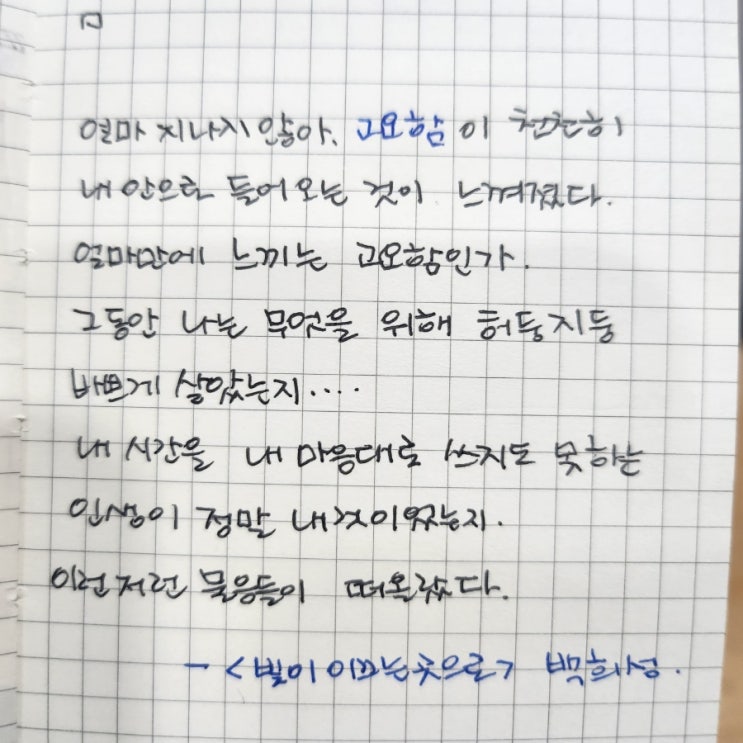 ㅁ
얼마 지나지 않아, 고요함이 천천히
내 안으로 들어오는 것이 느껴졌다.
얼마만에 느끼는 고요함인가.
그동안 나는 무엇을 위해 허둥지둥
바쁘게 살았는지....
내 시간을 내 마음대로 쓰지도 못하는
인생이 정말 내것이었는지.
이런저런 물음들이 떠올랐다.
- <빛이 이끄는 곳으로> 백희성.